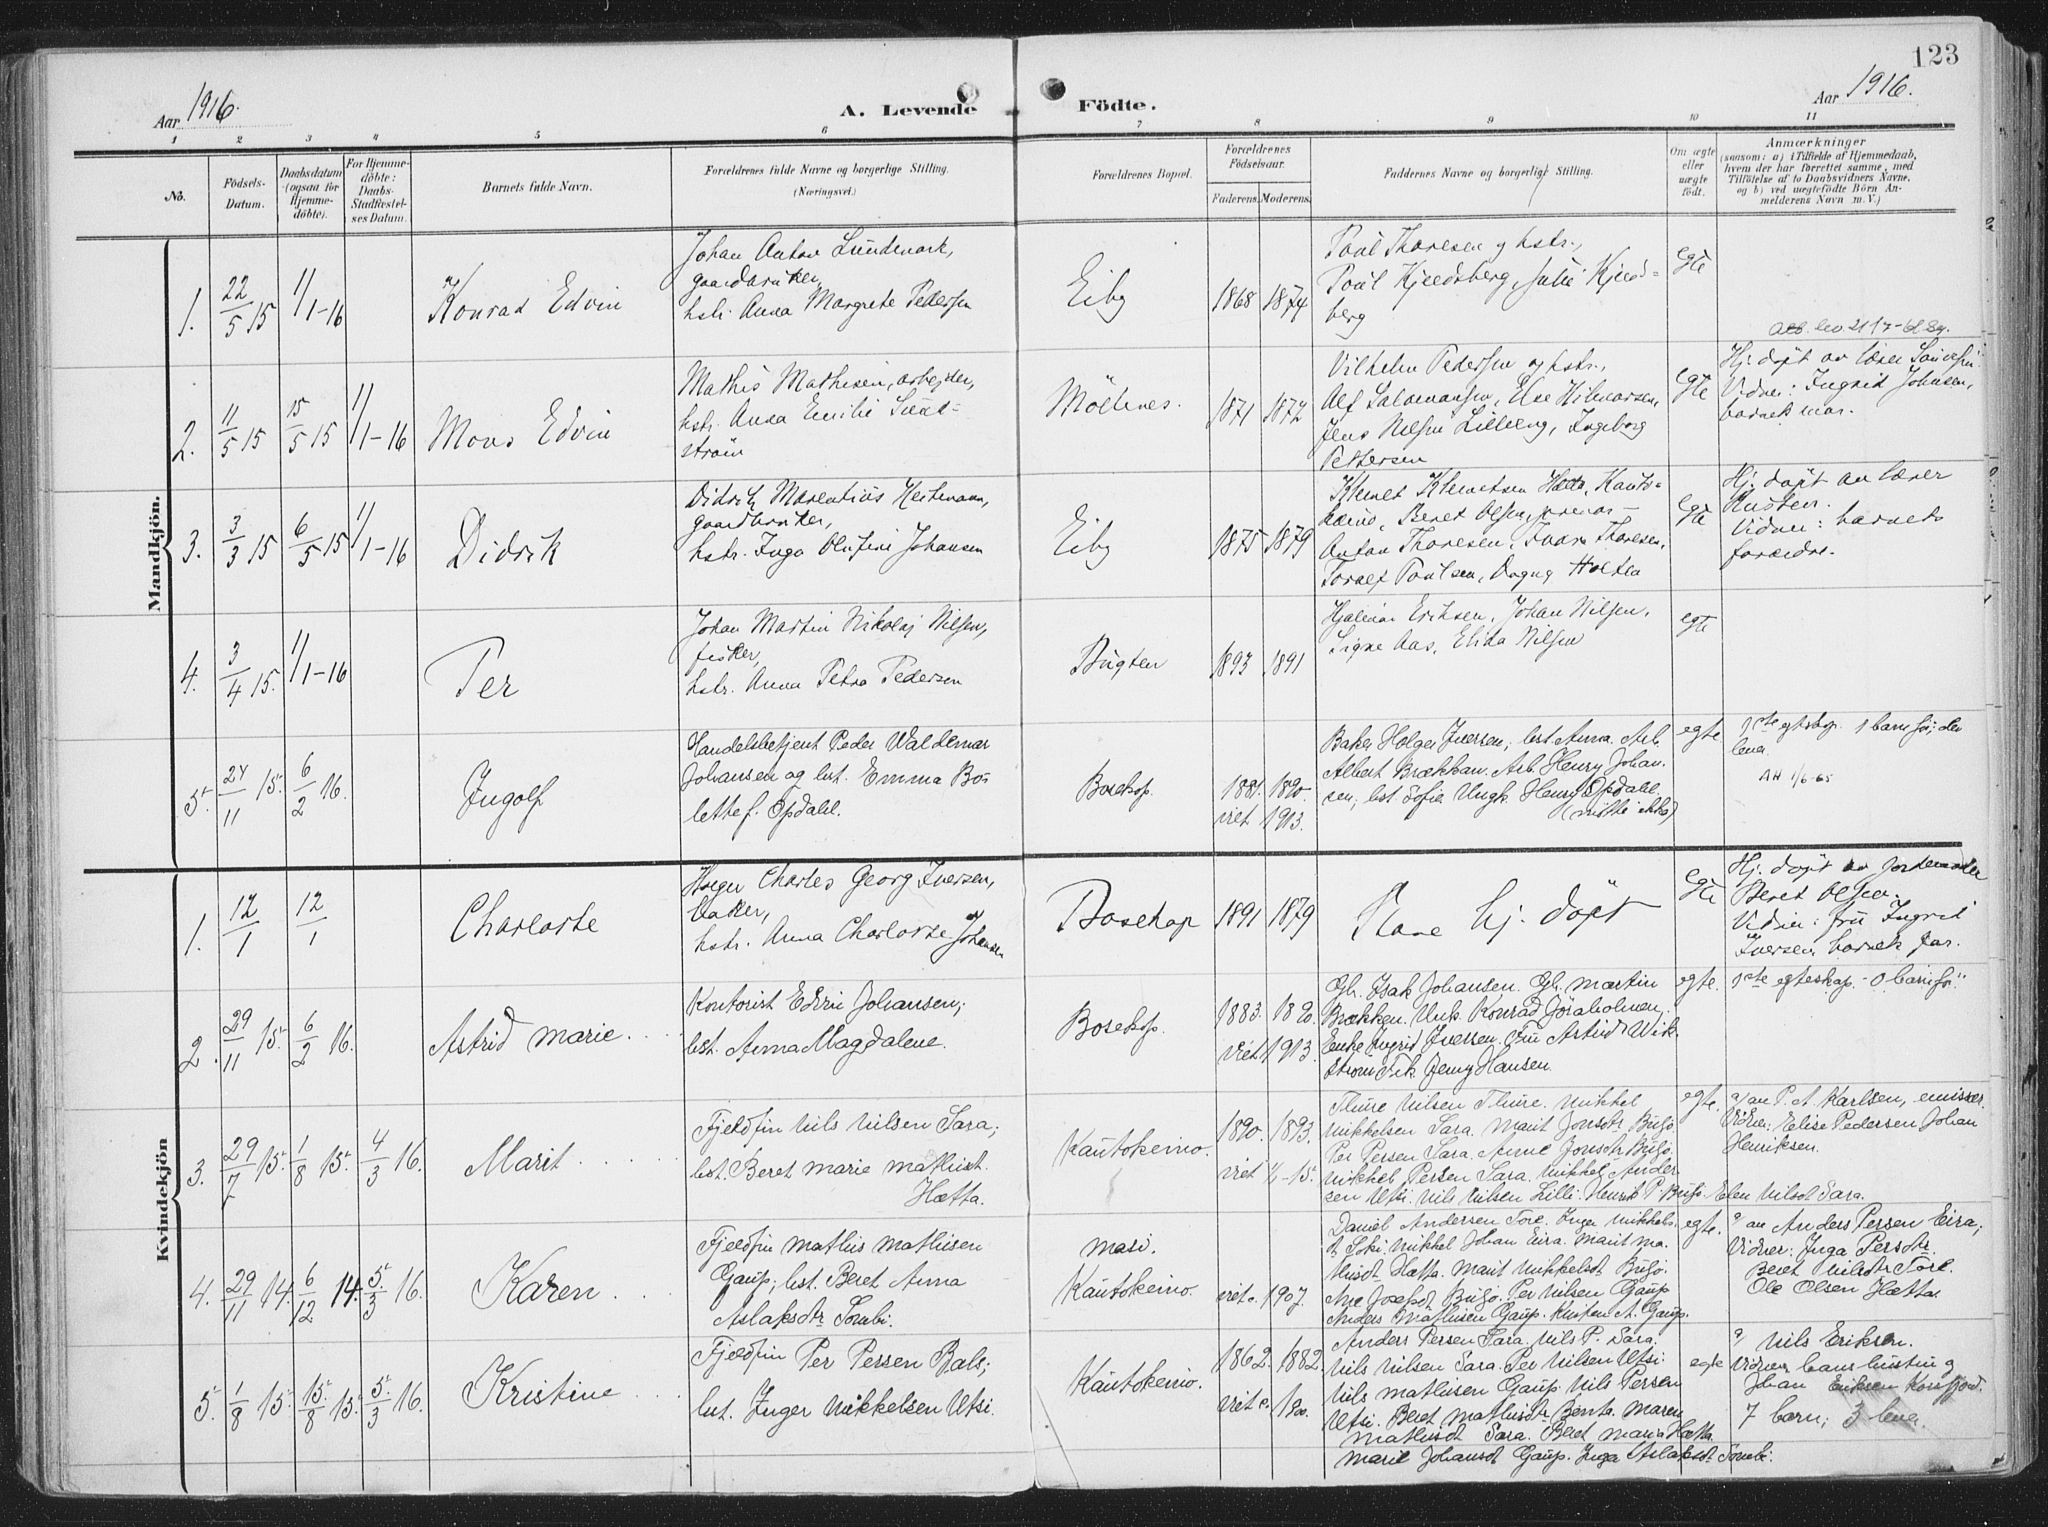 123
Aar 1916.
A. Levende Födte.
Aar 1916.
1 2 3 4 5 6 7 8 9 10 11
No.
Födsels-
Datum.
Daabsdatum
(ogsaa for
Hjemme-
döbte).
For Hjemme-
döbte:
Daabs-
Stadfæstel-
ses Datum.
Barnets fulde Navn.
Forældrenes fulde Navne og borgerlige Stilling.
(Næringsvei.)
Forældrenes Bopæl.
Forældrenes
Födselsaar.
Faderens. Moderens.
Faddernes Navne og borgerlige Stilling.
Om ægte
eller
uægte
födt.
Anmærkninger
(saasom: a) i Tilfælde af Hjemmedaab,
hvem der har forrettet samme, med
Tilföielse af to Daabsvidners Navne,
og b) ved uægtefödte Börn An-
melderens Navn m. V.)
Mandkjön.
1. 22/5 15 1/1-16
Konrad Edvin
Johan Anton Lundmark,
gaardbruker,
hstr. Anna Margrete Pedersen
Eiby
1868 1874
Poul Thoresen og hstr.,
Poul Kjeldsberg, Julie Kjelds-
berg
egte
2. 11/5 15 15/5 15 1/1-16
Mons Edvin
Mathis Mathisen, arbejder,
hstr. Anna Emilie Lund-
ström
Möllenes.
1871 1872
Vilhelm Pedersen og hstr.,
Alf Salamonsen, Else Hilmarsen,
Jens Nilsen Lilleeng, Ingeborg
Pettersen
egte
Hj. döpt av lærer
Vidner: Ingrid Johnsen,
barnets mor.
3. 3/3 15 6/5 15 1/1-16
Didrik
Didrik Marentius Hestmann,
gaardbruker,
hstr. Inga Olufine Johansen
Eiby
1875 1879
Klemet Klemetsen Hætta, Kauto-
keino, Beret Olsen,
Anton Thoresen, Ivar Thoresen,
Toralf Poulsen, Dagny Holten
egte
Hj. döpt av lærer
Husten.
Vidner: barnets
forældre.
4. 3/4 15. 1/1-16
Per
Johan Martin Nikolaj Nilsen,
fisker,
hstr. Anna Petra Pedersen
Bugten
1893 1891
Hjalmar Eriksen, Johan Nilsen,
Signe Aas, Elida Nilsen
egte
5. 24/11 15. 6/2 16.
Ingolf
Handelsbetjent Peder Waldemar
Johansen og hst. Emma Bo-
lettef. Opdahl.
Bosekop.
1881. 1890.
viet 1913.
Baker Holger Iversen; hst. Anna. Arb.
Albert Brækkan. Arb. Henry Johan-
sen; hst. Sofie Ungk. Henry Opdahl.
egte
1ste egtskap. 1 barn før; der
lever.
AH 1/6-65
Kvindekjön
1. 12/1 12/1
Charlotte
Holger Charles Georg Iversen,
baker,
hstr. Anna Charlotte Johansen
Bosekop
1891 1879
Bare hj. döpt
egte
Hj. döpt av jordemoder
Beret Olsen.
Vidner: fru Ingrid
Iversen, barnets far.
2. 29/11 15. 6/2 16.
Astrid Marie
Kontorist Edvin Johansen;
hst. Anna Magdalene.
Bosekop.
1883. 1890.
viet 1913.
Gbr. Isak Johansen. Gbr. Martin
Brækken. Unk. Konrad Jöraholmen.
Enke Ingrid Iversen. Fru Astrid Wik-
ström Frk. Jenny Hansen.
egte.
1ste egteskap. - 0 barn før
3. 29/7 15. 1/8 15. 4/3 16.
Marit
Fjeldfin Nils Nilsen Sara;
hst. Beret Marie Mathisd.
Hætta.
Kautokeino.
1890. 1893.
viet 1/1-15.
Thure Nilsen Thure. Mikkel
Mikkelsen Sara. Marit Jonsdtr Buljo
Per Persen Sara. Anne Jonsdtr Buljo.
Mikkel Persen Sara. Mikkel Ander-
sen Utsi. Nils Nilsen Lilli. Henrik P. Buljo. Elen Nilsdt Sara.
egte.
a/ av P. A. Karlsen, emissær.
Vidner: Elise Pedersen Johan
Henriksen.
4. 29/11 14. 6/12 14. 5/3 16.
Karen
Fjeldfin Mathis Mathisen
Gaup; hst. Beret Anna
Aslaksdtr Sombi.
Masi.
Kautokeino.
viet. 1907.
Daniel Andersen Tore. Inger Mikkels-
d. Soki. Mikkel Johan Eira. Marit Ma-
thisdt Hætta. Marit Mikkelsdt Buljo.
Ane Josefsdt Buljo. Per Nilsen Gaup
Anders Mathisen Gaup. Kirsten A. Gaup.
egte.
a/ av Anders Persen Eira;
Vidner: Inga Persdtr.
Beret Nilsdtr Tore.
Ole Olsen Hætta
5. 1/8 15. 15/8 15. 5/3 16.
Kristine
Fjeldfin Per Persen Bals;
hst. Inger Mikkelsen Utsi.
Kautokeino.
1862. 1882.
viet. 1900.
Anders Persen Sara. Nils P. Sara.
Nils Nilsen Sara. Per Nilsen Utsi.
Nils Mathisen Gaup. Nils Persen
Utsi. Beret Mathisdtr Bientz. Maren
Mathisdt Sara. Beret Maria Hætta.
Marie Johansdt Gaup. Inga Aslaksdt Sombi.
egte
a/ Nils Eriksen.
Vidner: hans hustru og
Johan Eriksen Korsfjord.
7 barn; 3 lever.